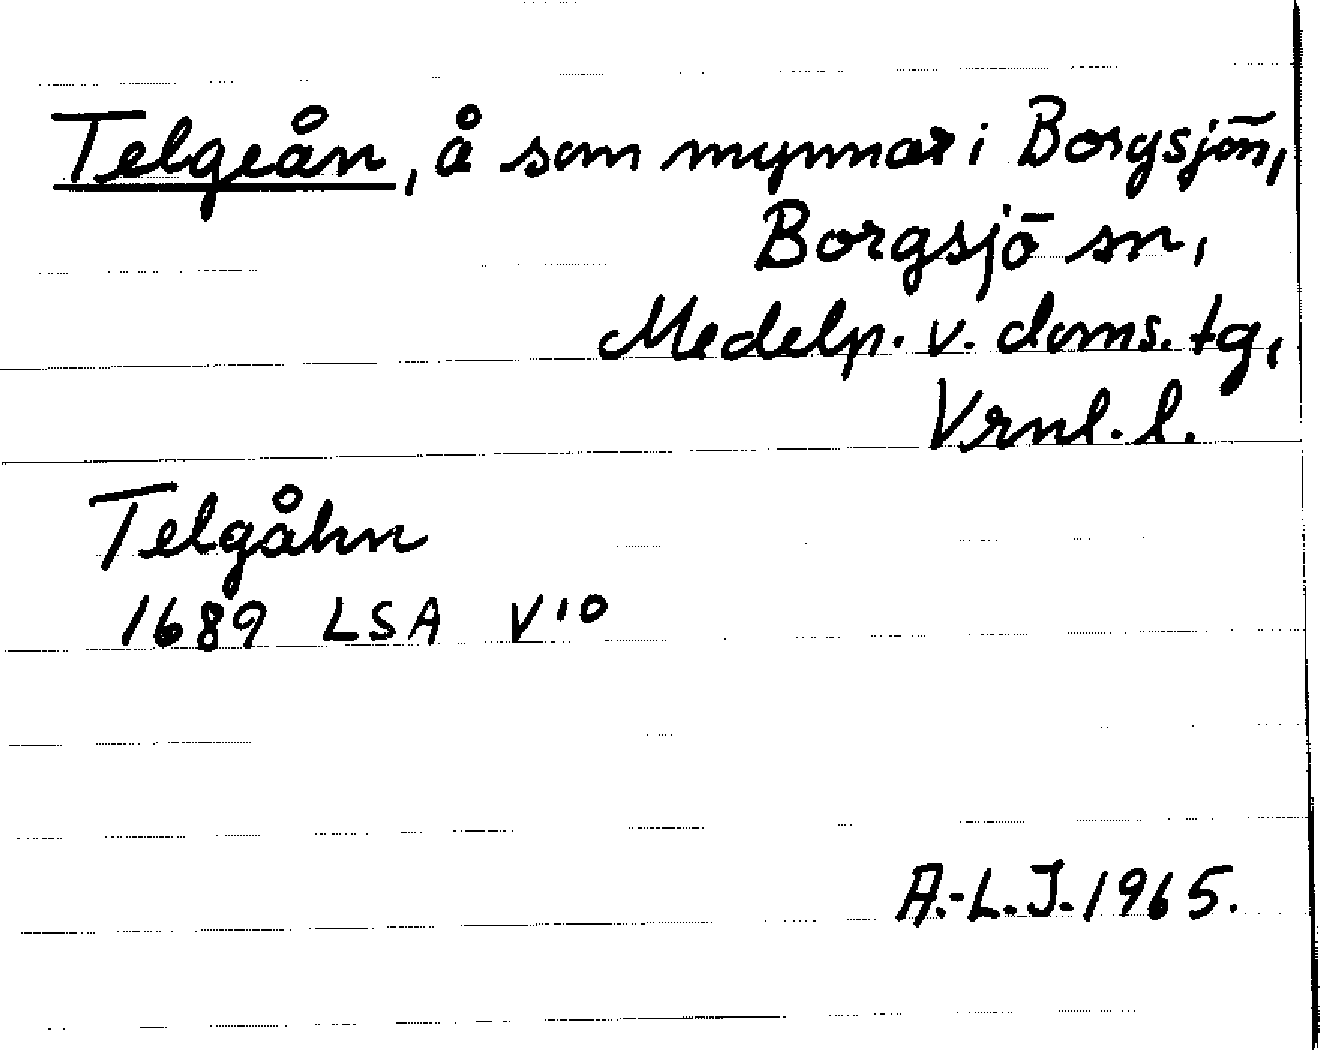 Telgeån, å som mynnar i Borgsjön,
Borgsjö sn,
Medelp. v. doms. tg,
Vrnl. l.
Telgåhn
1689 LSA V10
A.-L.J. 1965.